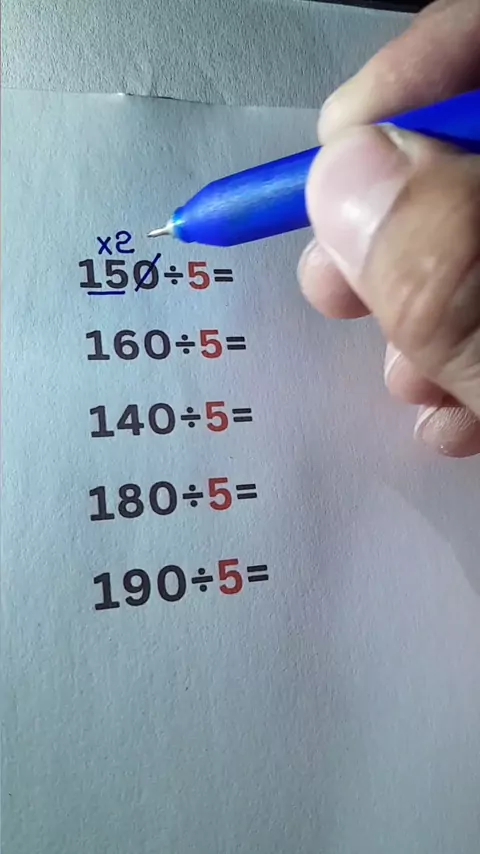 x2
150÷5=
160÷5=
140÷5=
180÷5=
190÷5=